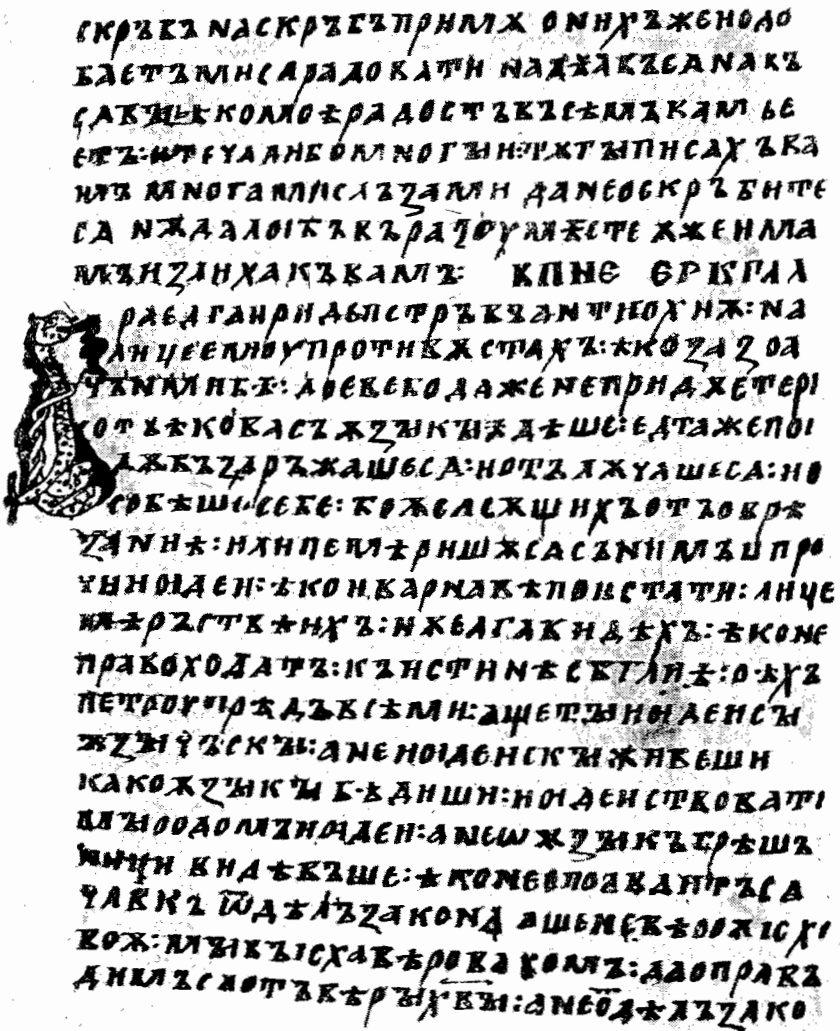 скръбъ на скръбъ приимѫ о нихъже подо
баетъ ми сѧ радовати надѣѩ въсѧ на въ
сѧ вꙑ ѣко моѣ радость въсѣмъ вамъ ѥ
стъ: отъ печали бо многꙑ и тѫгꙑ писахъ ва
мъ многами слъзами да не оскръбите
сѧ нѫ да любъвъ разоумѣете ѭже имаа
мъ излиха къ вамъ: к п не ер к гал
рає егда приде петръ въ антиохиѭ: на
лице емоу противѫ стахъ: ѣко зазоа
чънъ бѣ: доевъ бо даже не придѫ етері
от ѣкова съ ѩзꙑкꙑ ѣдѣше: егда же поі
дѫ въздръжаше сѧ: и отълѫчаше сѧ: но
собѣше себе: боѩ сѧ сѫщихъ отъ обрѣ
заниѣ: и лицемѣришѫ сѧ съ нимъ и про
чии июдеи: ѣко и варнавѣ пристати: лице
мѣрьствѣ ихъ: нѫ егда видѣхъ: ѣко не
право ходѧтъ: къ истинѣ евглиѣ: рѣхъ
петроу прѣдъ всѣми: аще тꙑ июдеи сꙑ
ѩзꙑчъскꙑ: а не июдеискꙑ живеши
како ѩзꙑкꙑ бѣдиши: июдеиствовати
мꙑ родомъ июдеи: а не ѿ ѩзꙑкъ грѣшъ
ници видѣвъше: ѣко не оправдитъ сѧ
члвкъ ѿ дѣлъ закона аще не вѣроѭ іс хі
воѭ: мꙑ въ іс ха вѣровахомъ: да оправъ
димъ сѧ отъ вѣрꙑ хвꙑ: а не ѿ дѣлъ зако